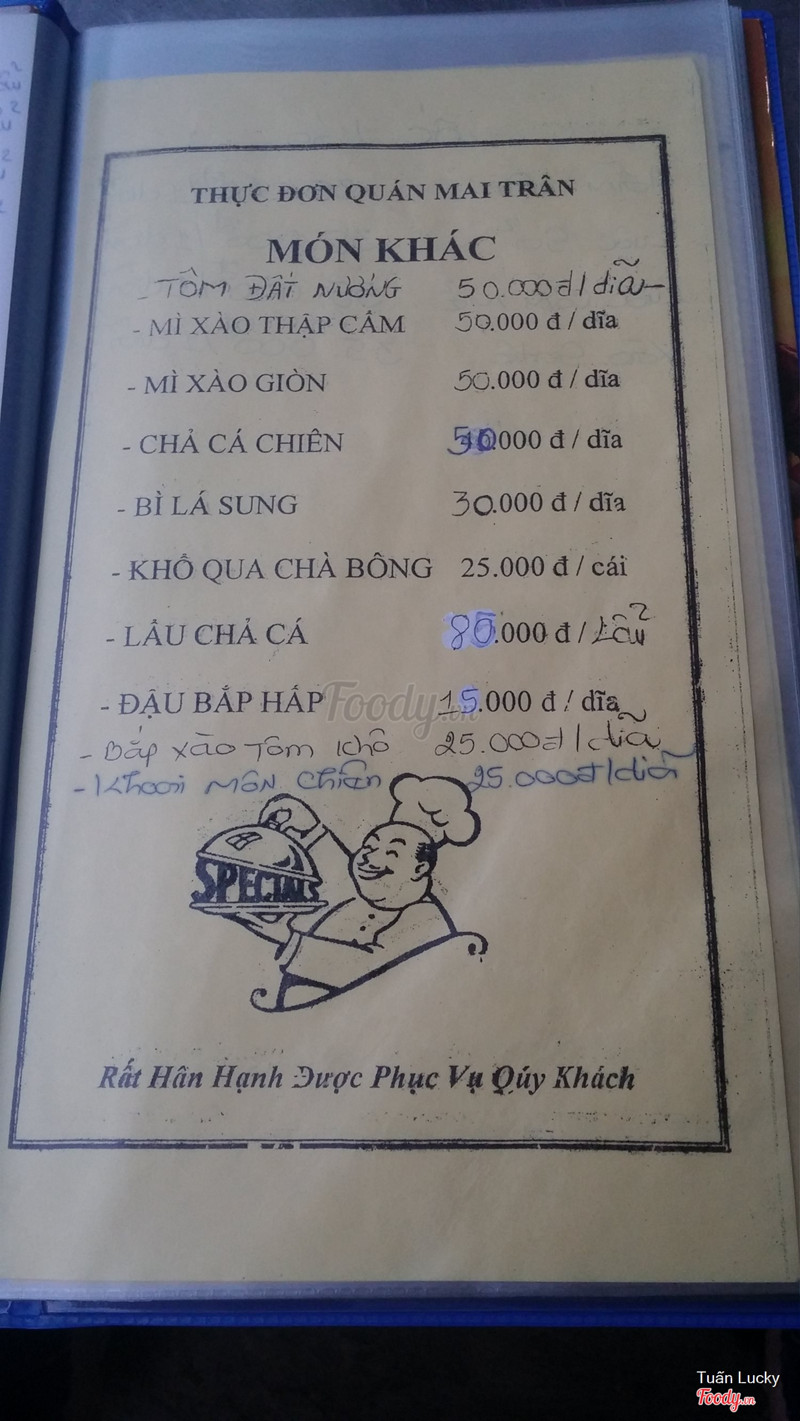 THỰC ĐƠN QUÁN MAI TRÂN
MÓN KHÁC
- TÔM ĐẤT NƯỚNG 50.000đ/dĩa
- MÌ XÀO THẬP CẨM 50.000 đ / dĩa
- MÌ XÀO GIÒN 50.000 đ / dĩa
- CHẢ CÁ CHIÊN 50.000 đ / dĩa
- BÌ LÁ SUNG 30.000 đ / dĩa
- KHỔ QUA CHÀ BÔNG 25.000 đ / cái
- LẨU CHẢ CÁ 80.000 đ / Lẩu
- ĐẬU BẮP HẤP 15.000 đ / dĩa
- Bắp xào Tôm khô 25.000đ/dĩa
- Khoai Môn Chiên 25.000đ/dĩa
SPECIALS
Rất Hân Hạnh Được Phục Vụ Qúy Khách
Foody.vn
Tuấn Lucky
Foody.vn